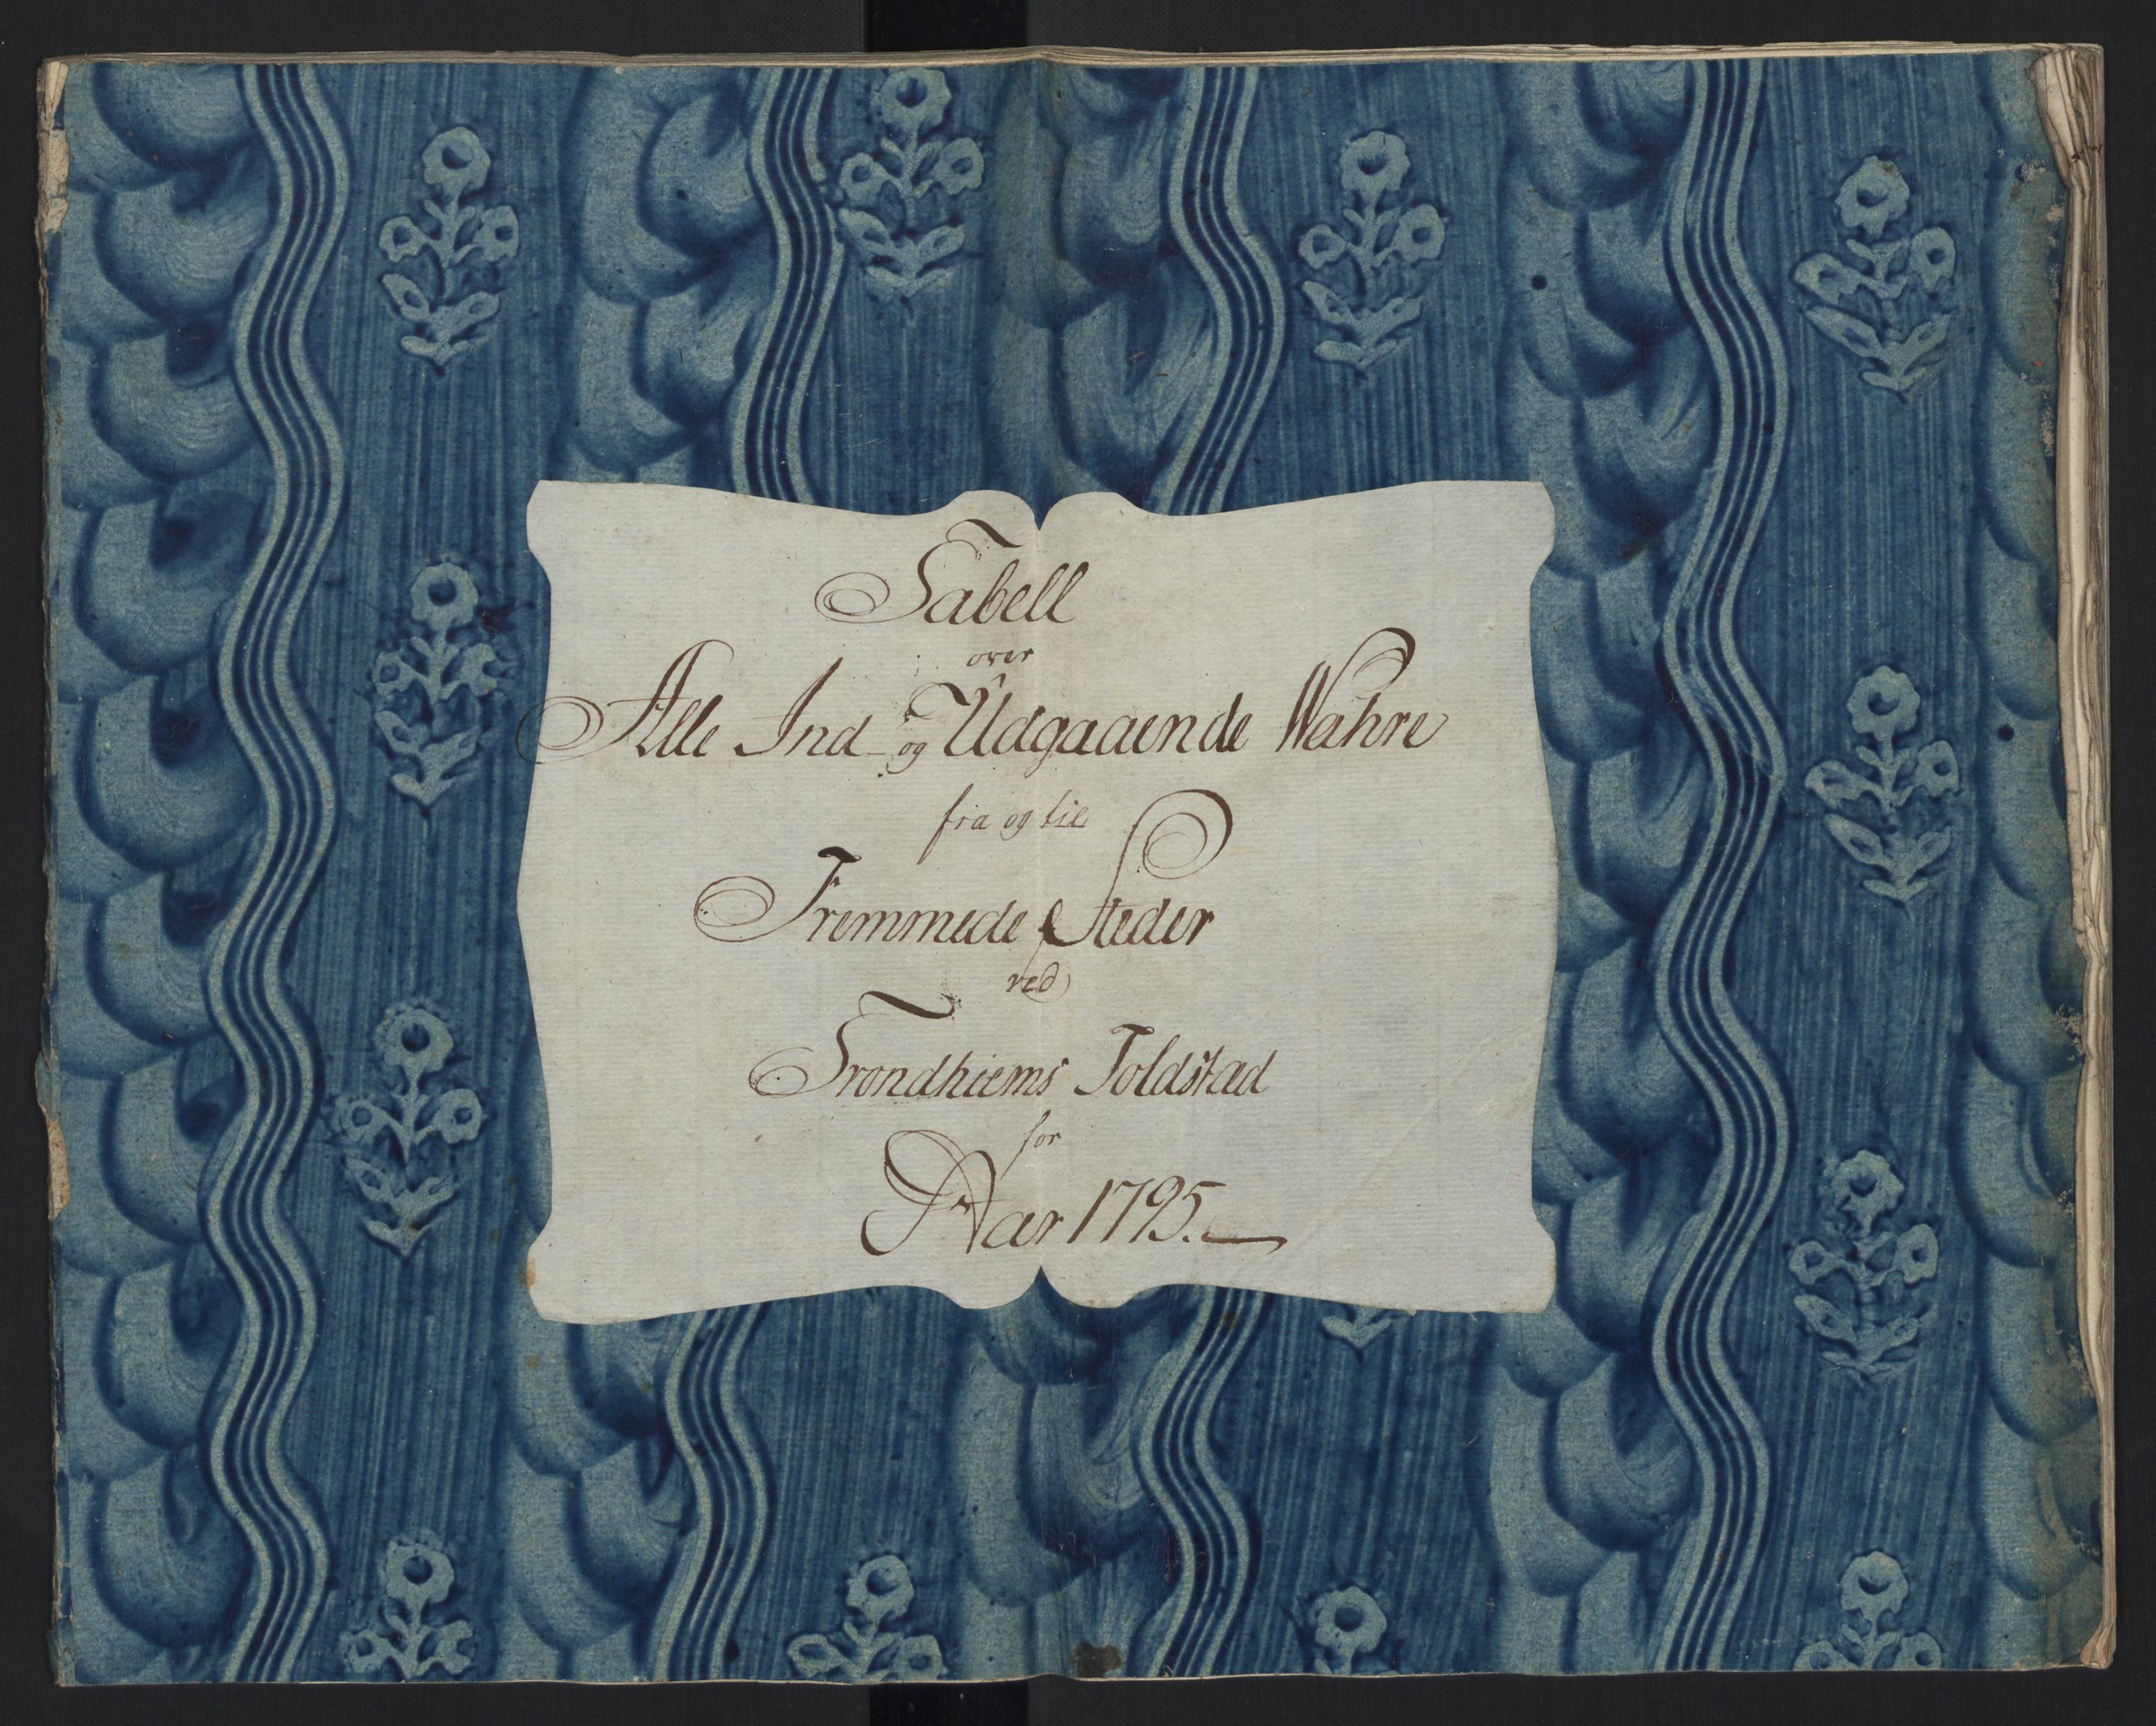 Tabell
over
Alle Ind- og Udgaaende Wahre
fra og til
Fremmede Steder
ved
Trondhiems Toldstæd
for
Aar 1795.